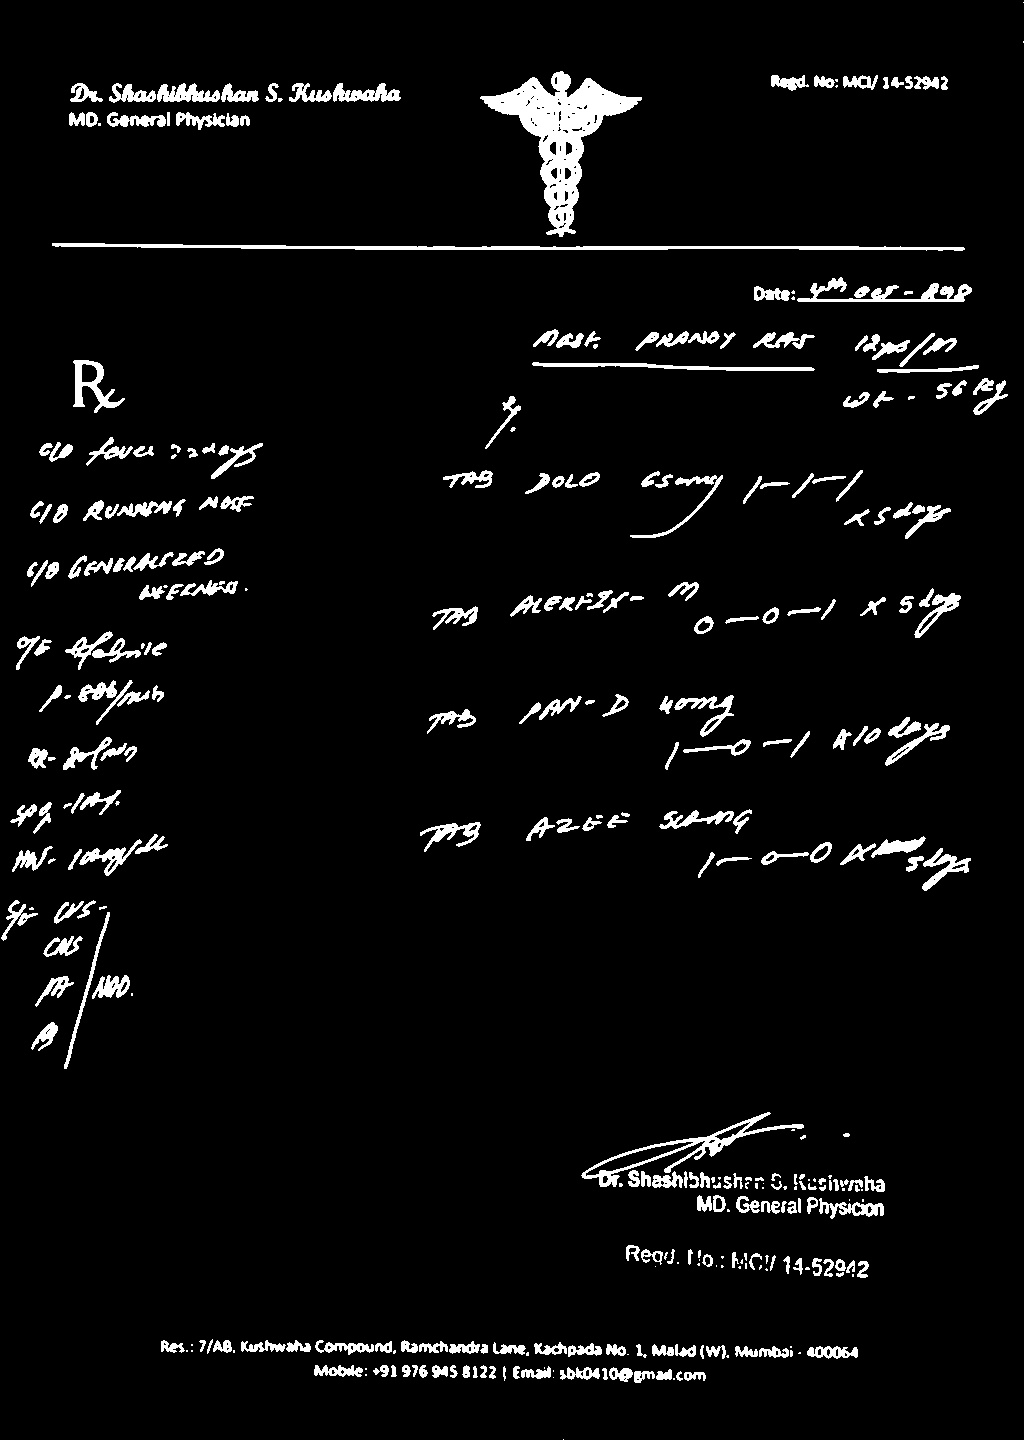 Dr. Shashibhushan S. Kushwaha
MD. General Physician
Regd. No: MCI/ 14-52942
Date: 4th Oct -
Mast. PRANOY RAJ 12yrs/M
Wt - 56 kg
Rx
C/O fever 22days
C/O RUNNING NOSE
C/O GENERALIZED
WEEKNESS.
O/E Afebrile
P- 88b/min
RR- 20/min
SpO2
S/E CVS-
CNS
PA NAD.
TAB DOLO 650mg 1-1-1
x 5 days
TAB ALERFIX- M
0-0-1 X 5 days
TAB PAN-D 40mg
1-0-1 X 10 days
TAB AZEE 500MG
1-0-0 X 5 days
Dr. Shashibhushan S. Kushwaha
MD. General Physicion
Regd. No.: MCI/ 14-52942
Res.: 7/AB, Kushwaha Compound, Ramchandra Lane, Kachpada No. 1, Malad (W), Mumbai - 400064
Mobile: +91 976 945 8122 | Email: sbk0410@gmail.com